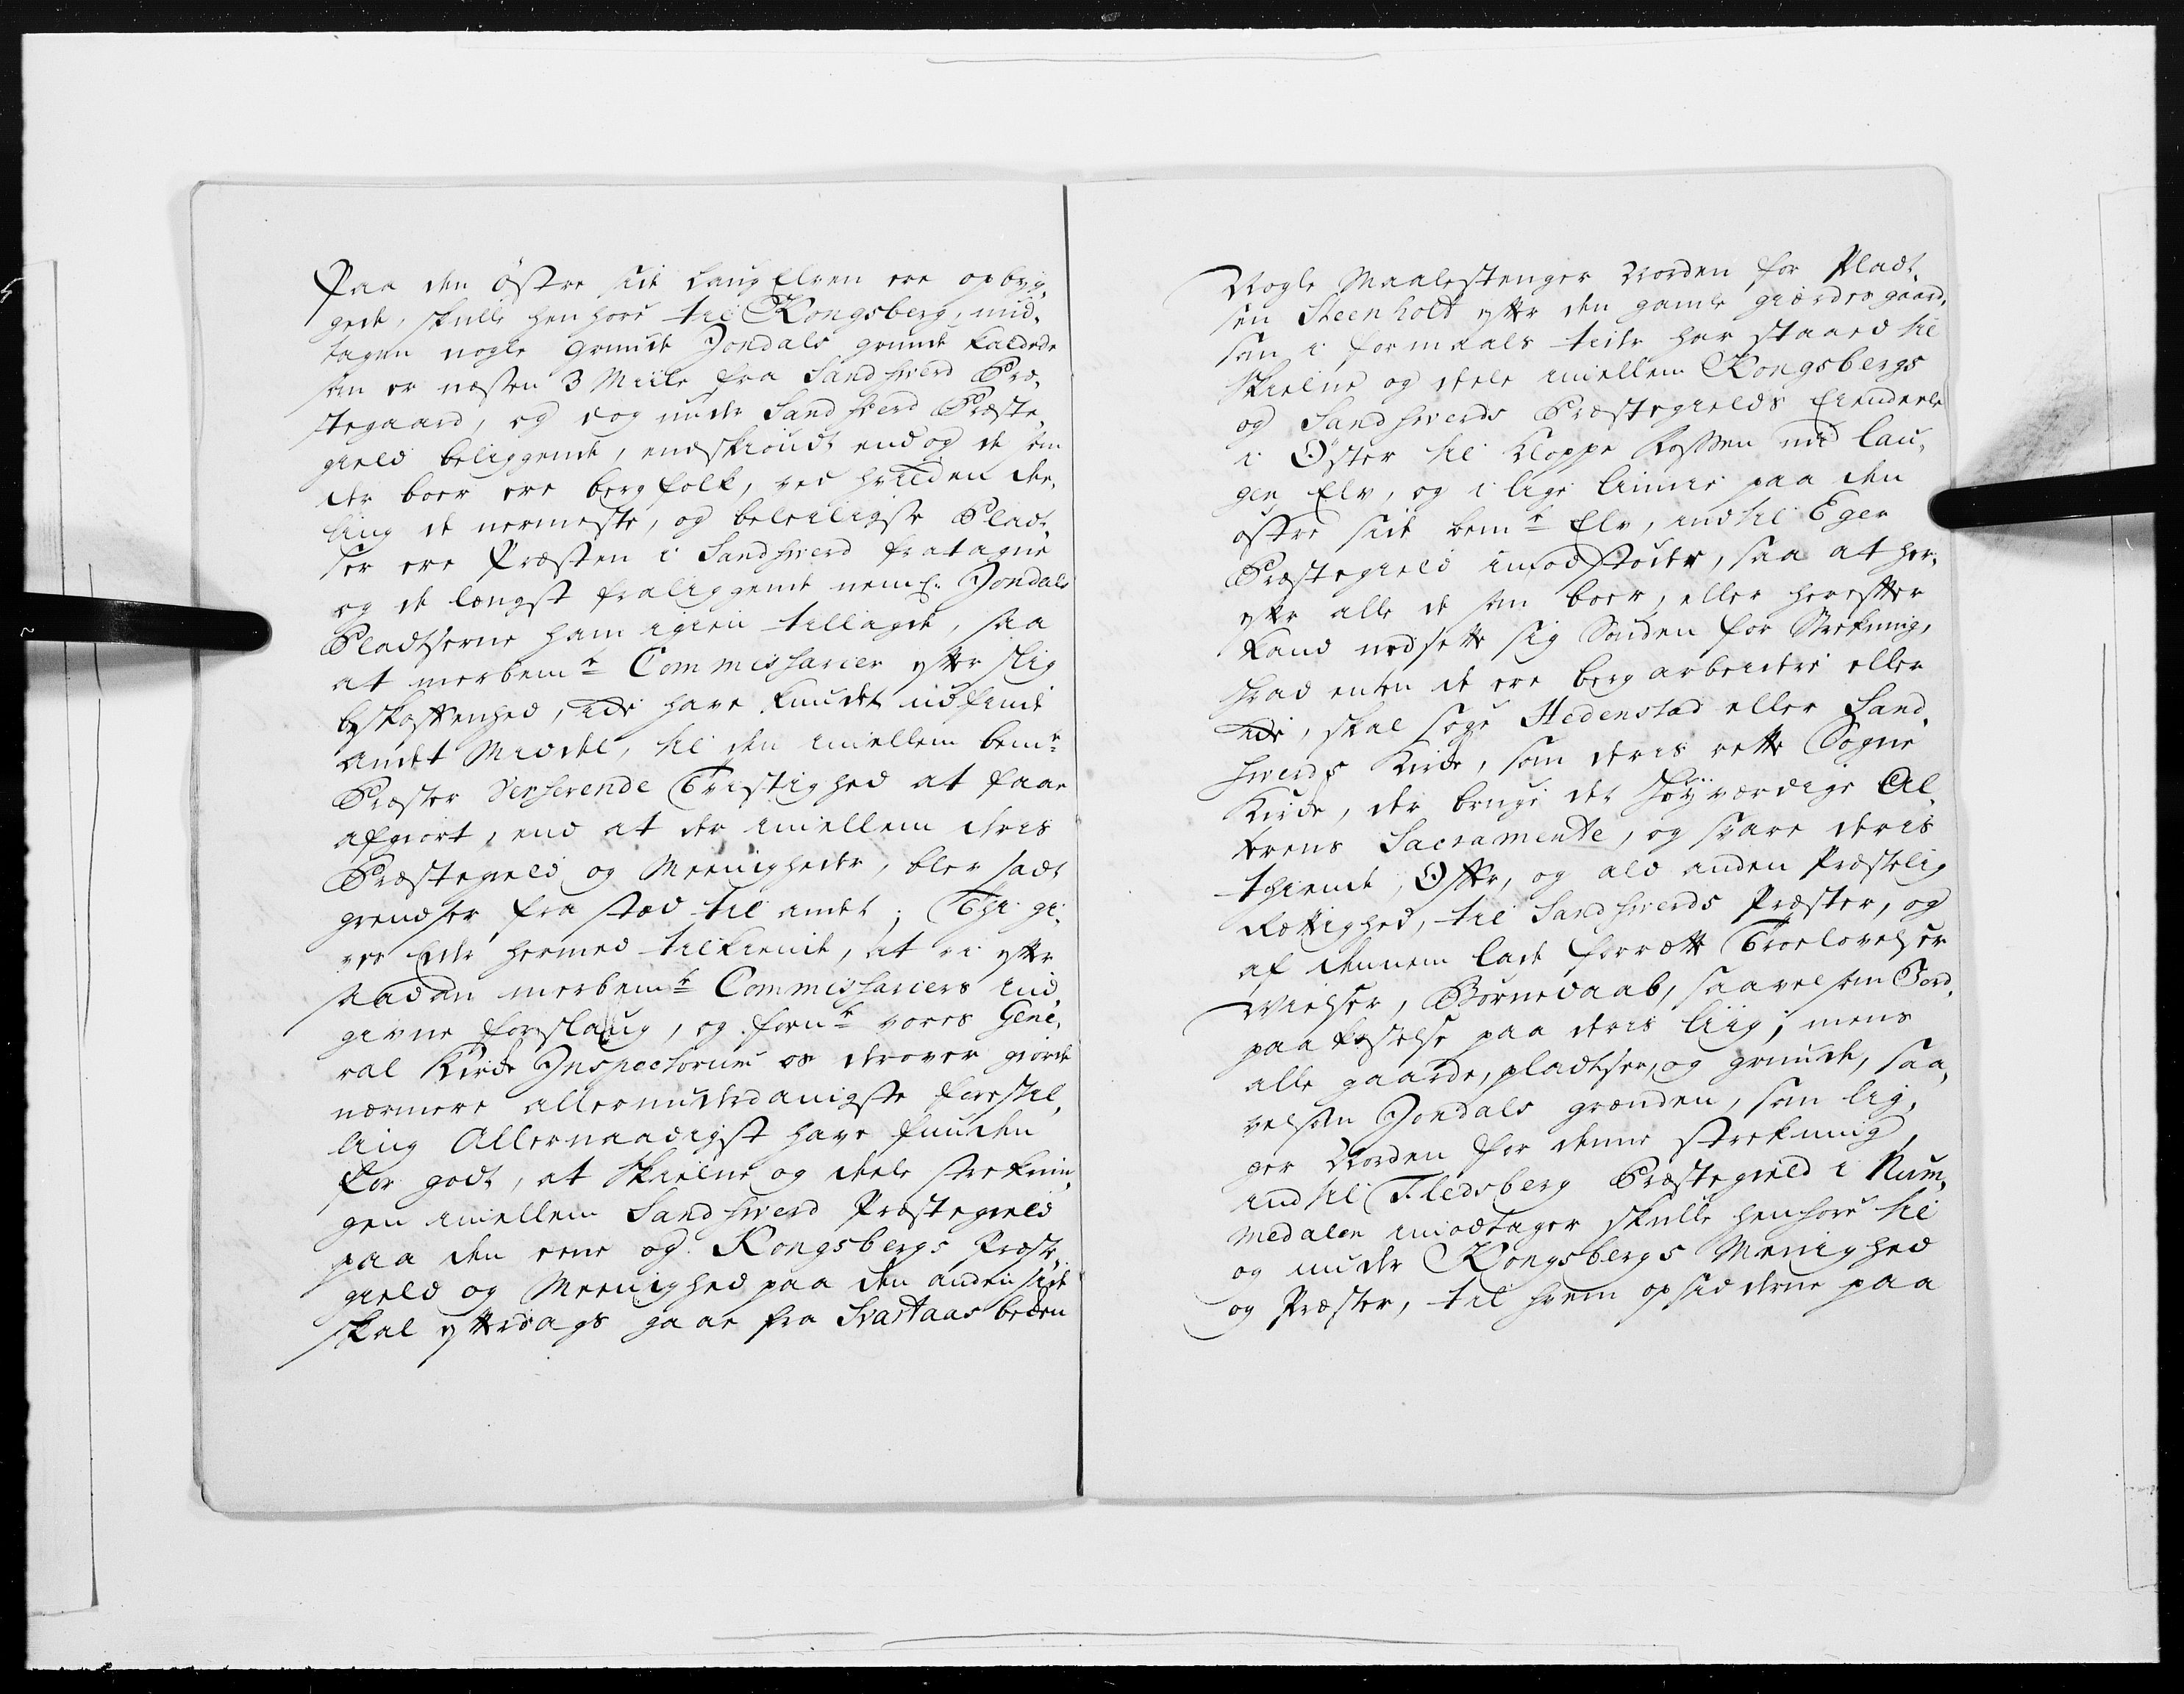 Paa den østre side Laug Elven ere opbyg-
gede, skulle henhøre til Kongsberg, und-
tagen nogle Grunde Jondals grunde kaldede
som er næsten 3 Miile fra Sandsverd Præ-
stegaard, og dog under Sandsverd Præste-
gield beliggende, endskiøndt endog de som
der boer ere bergfolk, ved hvilcken dee-
ling de nermeste, og beleiligste Pladt-
ser ere Præsten i Sandsverd fratagne
og de længst fraliggende neml. Jondals
Pladtserne ham igien tillagde, saa
at merbemte Commissarier efter slig
beskaffenhed, icke have kundet udfinde
andet Middel, til den imellem bemte
Præster Verserende Tvistighed at faae
afgiort, end at der imellem deris
Præstegield og Meenigheder, blev sadt
grendser fra sted til andet; Thi gi-
ves Eder hermed tilkiende, at vi efter
saadan merbemte Commissariers ind-
givne forslaug, og fornte vores Gene-
ral Kirke Inspectorum os derover giorde
nærmere allerunderdanigste forestil-
ling Allernaadigst have funden
for godt, at Skielne og deele streknin-
gen imellem Sandsverd Præstegield
paa den eene og Kongsbergs Præste-
gield og Meenighed paa den anden side
skal efterdags gaae fra Svartaas becken
Nogle Maalestenger Norden for Pladt-
sen Steenholt efter den gamle gierdesgaard,
som i formaals tider har staaed til
Skielne og deele imellem Kongsbergs
og Sandsverds Præstegields Eiendeele
i Øster til Kloppe Fossen ved Lau-
gen Elv, og i lige linnie paa den
østre side bemte Elv, indtil Eger
Præstegield imodstøder, saa at her-
efter alle de som boer, eller herefter
kand nedsette sig Sønden for Strekning,
hvad enten de ere berg arbeidere eller
icke, skal søge Hedenstad eller Sand-
sverds Kirke, som deris rette Sogne
Kirke, der bruge det Høyværdige Al-
terens Sacramente, og svare deris
thiende, Offer, og ald anden Præstelig
Rettighed, til Sandsverds Præster, og
af dennem lade forrette Troelovelser
Vielser, Børnedaab, saavelsom Jord-
paakastelse paa deris Liig; mens
alle gaarde, pladtser, og grunde, saa-
velsom Jondals grænden, som lig-
ger Norden for denne strekning
indtil Fledsberg Præstegield i Num-
medalen imodtager skulle henhøre til
og under Kongsbergs Menighed
og Præster, til hvem opsidderne paa